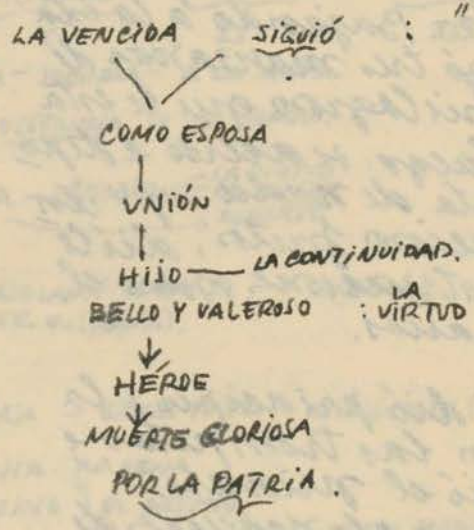 LA VENCIDA SIGUIÓ : "
COMO ESPOSA
UNIÓN
HIJO — LA CONTINUIDAD.
BELLO Y VALEROSO : LA VIRTUD
HÉROE
MUERTE GLORIOSA
POR LA PATRIA.